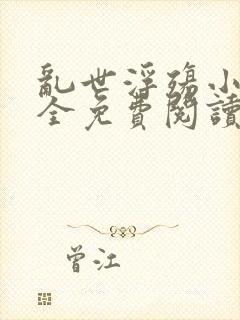 亂世浮殤小
全免費閱讀
曾江